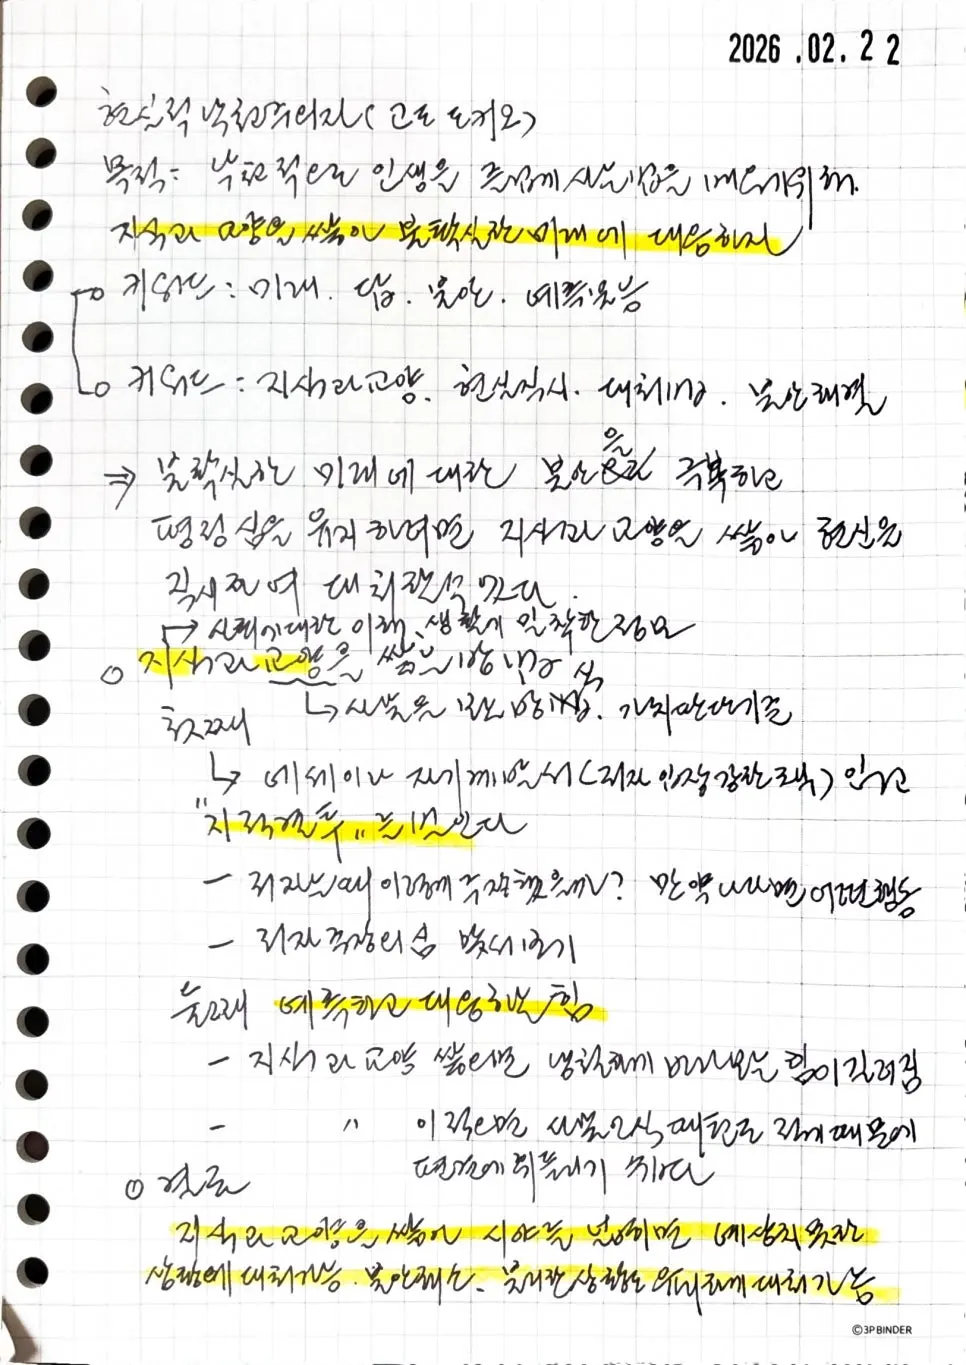 2026.02.22
현실적 낙천주의자(고도 토키오)
목적: 낙천적으로 인생을 즐겁게 사는법을 배우기위해.
지식과 교양을 쌓아 불확실한 미래에 대응하자
키워드 : 미래. 답. 불안. 예측불능
키워드 : 지식과교양. 현실직시. 대처방법. 불안해결
⇒ 불확실한 미래에 대한 불안을 극복하고
평정심을 유지하려면 지식과 교양을 쌓아 현실을
직시하여 대처할수 있다.
→ 사회에대한 이해, 생활에 밀착한 정보
○ 지식과 교양을 쌓는 방법
↳ 사물을 보는 방법. 가치판단기준
첫째
↳ 에세이나 자기계발서(저자 주장 강한 도서) 읽고
"지적격투"를 벌인다
- 저자는 왜 이렇게 주장했을까? 만약 나라면 어떤행동
- 저자 주장의심 맞서보기
둘째 예측하고 대응하는 힘
- 지식과 교양 쌓으면 냉철하게 바라보는 힘이 길러짐
- 〃 이 적으면 사물인식 패턴도 적기 때문에
편견에 휘둘리기 쉽다
○ 결론
지식과 교양을 쌓아 시야를 넓히면 예상치 못한
상황에 대처가능. 불안해소. 불리한 상황도 유리하게 대처가능
©3P BINDER